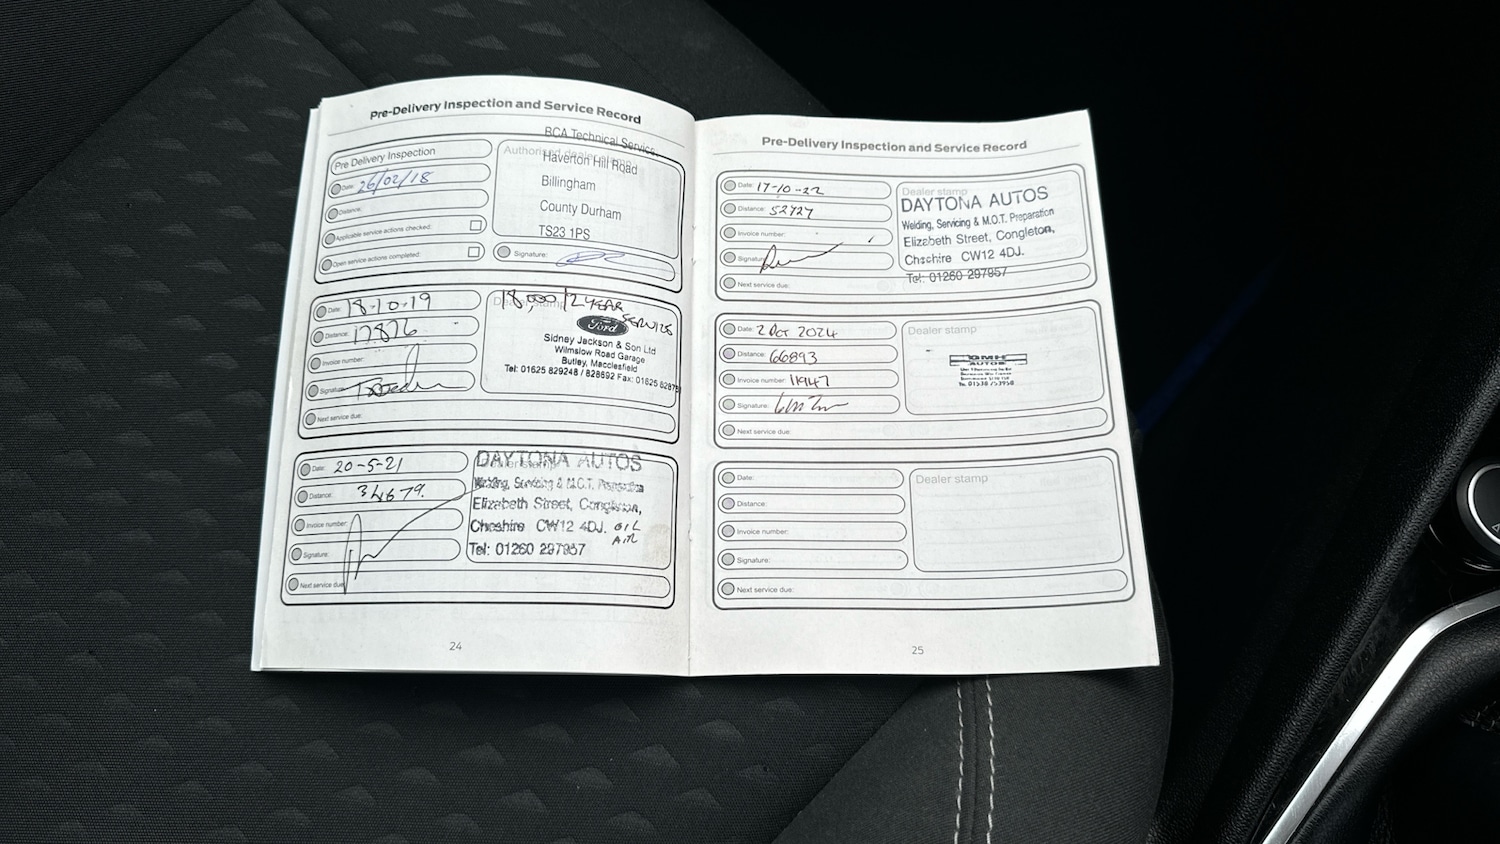 Pre-Delivery Inspection and Service Record
Pre Delivery Inspection
Date: 26/02/18
Distance:
Applicable service actions checked:
Open service actions completed:
Authorised dealer stamp
BCA Technical Service
Haverton Hill Road
Billingham
County Durham
TS23 1PS
Signature:
Date: 18-10-19
Distance: 17876
Invoice number:
Signature:
Next service due:
Dealer stamp
18,000/2 YEAR
SERVICE
Ford
Sidney Jackson & Son Ltd
Wilmslow Road Garage
Butley, Macclesfield
Tel: 01625 829248 / 828692 Fax: 01625 8287
Date: 20-5-21
Distance: 34679.
Invoice number:
Signature:
Next service due:
Dealer stamp
DAYTONA AUTOS
Welding, Servicing & M.O.T. Preparation
Elizabeth Street, Congleton,
Cheshire CW12 4DJ.
Tel: 01260 297957
OIL
AIR
24
Pre-Delivery Inspection and Service Record
Date: 17-10-22
Distance: 52727
Invoice number:
Signature:
Next service due:
Dealer stamp
DAYTONA AUTOS
Welding, Servicing & M.O.T. Preparation
Elizabeth Street, Congleton,
Cheshire CW12 4DJ.
Tel: 01260 297957
Date: 2 Oct 2024
Distance: 66893
Invoice number: 11947
Signature:
Next service due:
Dealer stamp
GMH
AUTOS
Tel. 01538 753958
Date:
Distance:
Invoice number:
Signature:
Next service due:
Dealer stamp
25